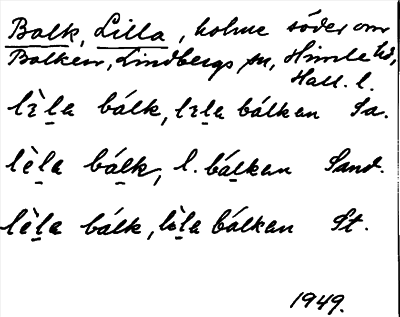 Balk, Lilla, holme söder om
Balken, Lindbergs sn, Himle hd,
Hall. l.
lìla bálk, lıla bálkan Sa.
lèla bálk, l. bálkan Sand.
lèla bálk, lèla bálkan St.
1949.